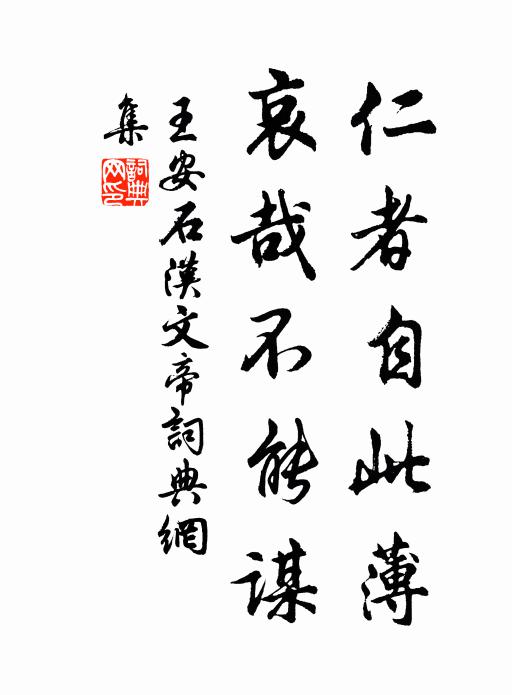 仁者自此薄
哀哉不能謀
王安石漢文帝詞典網
集
詞典网印